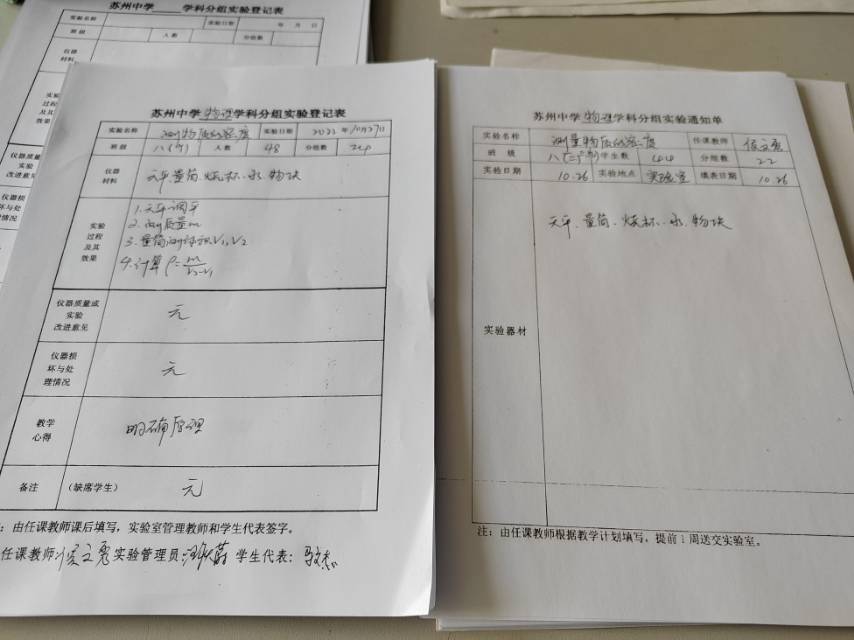 苏州中学 学科分组实验登记表
实验名称 实验日期 年 月 日
班级 人数 分组数
仪器
材料
实验
过程
及其
效果
仪器质量或
实验
改进意见
仪器损
坏与处
理情况
苏州中学物理学科分组实验登记表
实验名称 测物质的密度 实验日期 年10月27日
班级 人数 48 分组数
仪器
材料
天平 量筒 烧杯 水 物块
实验
过程
及其
效果
1.天平调平
2.测质量m
3.量筒测体积V₁,V₂
4.计算ρ=m/(V₂-V₁)
仪器质量或
实验
改进意见
无
仪器损
坏与处
理情况
无
教学
心得
明确原理
备注 (缺席学生) 无
:由任课教师课后填写,实验室管理教师和学生代表签字。
任课教师: 实验管理员: 学生代表:
苏州中学物理学科分组实验通知单
实验名称 测量物质的密度 任课教师
班级 学生数 44 分组数 22
实验日期 10.26 实验地点 实验室 填表日期 10.26
实验器材
天平、量筒、烧杯、水、物块
注:由任课教师根据教学计划填写,提前1周送交实验室。